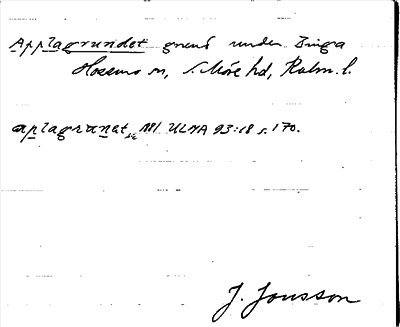 Applagrundet grund under Ziriga
Hossmo sn, S. Möre hd, Kalm. l.
aplagrunet, ᵃᶜ NM ULMA 93:18 s. 170.
J. Jonsson